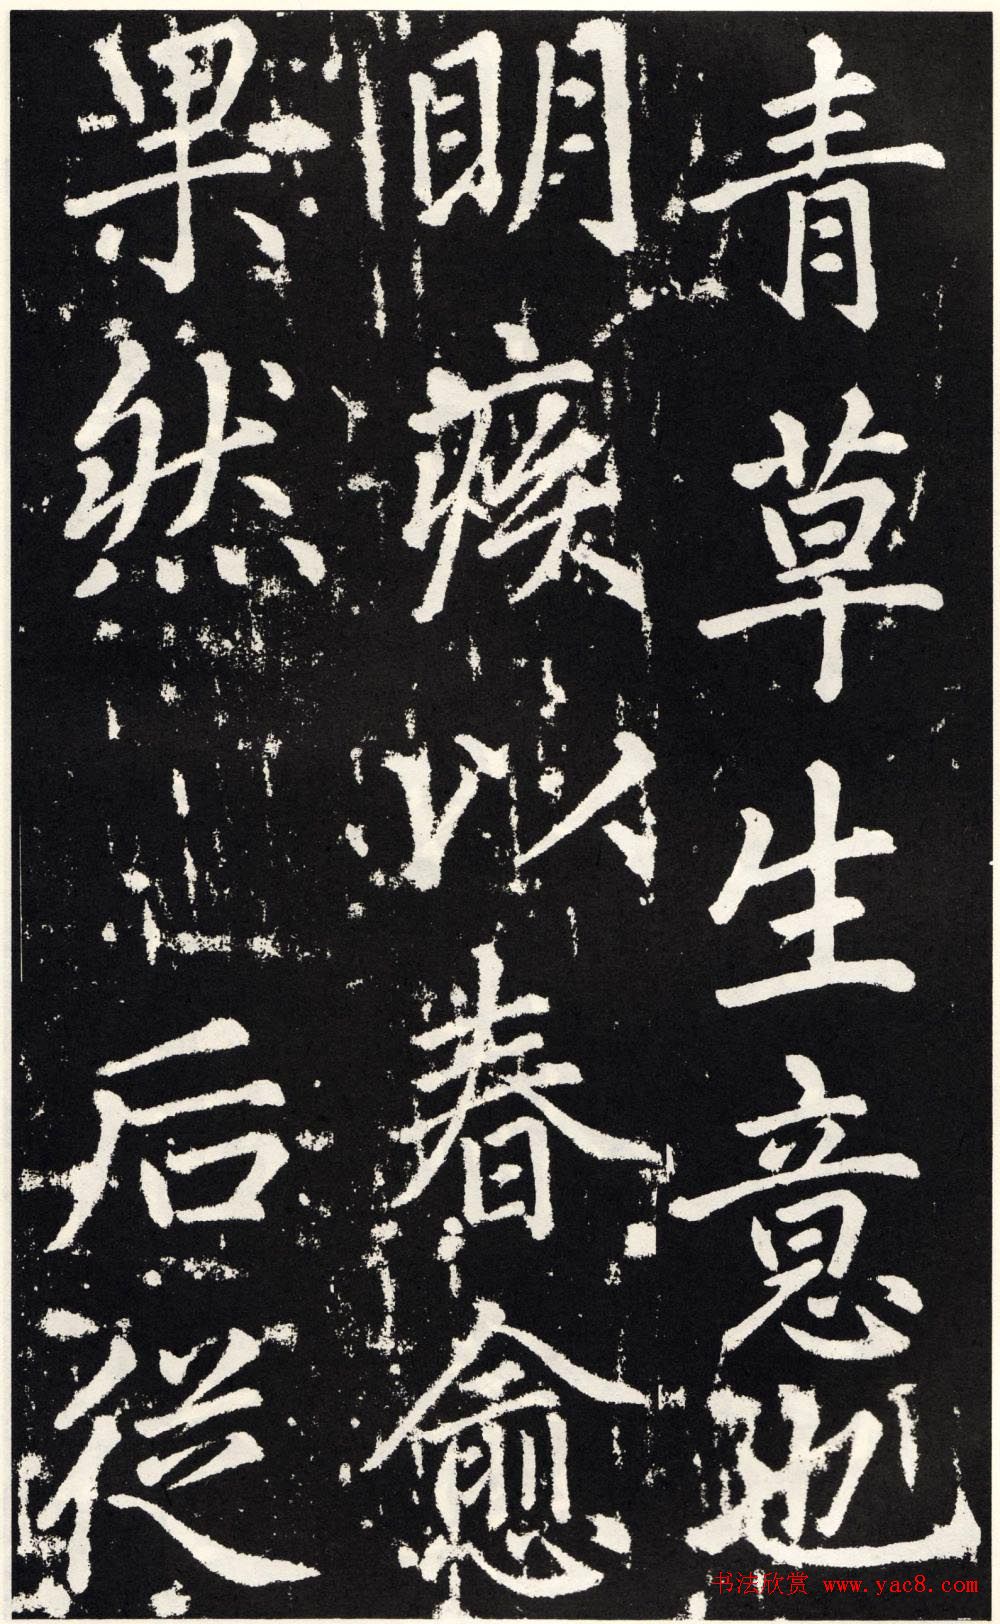 青草生意也
明疾以春愈
果然后從
书法欣赏 www.yac8.com